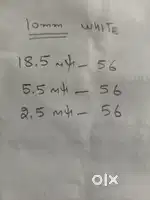 10mm WHITE
18.5 मψ - 56
5.5 मψ - 56
2.5 मψ - 56
OLX